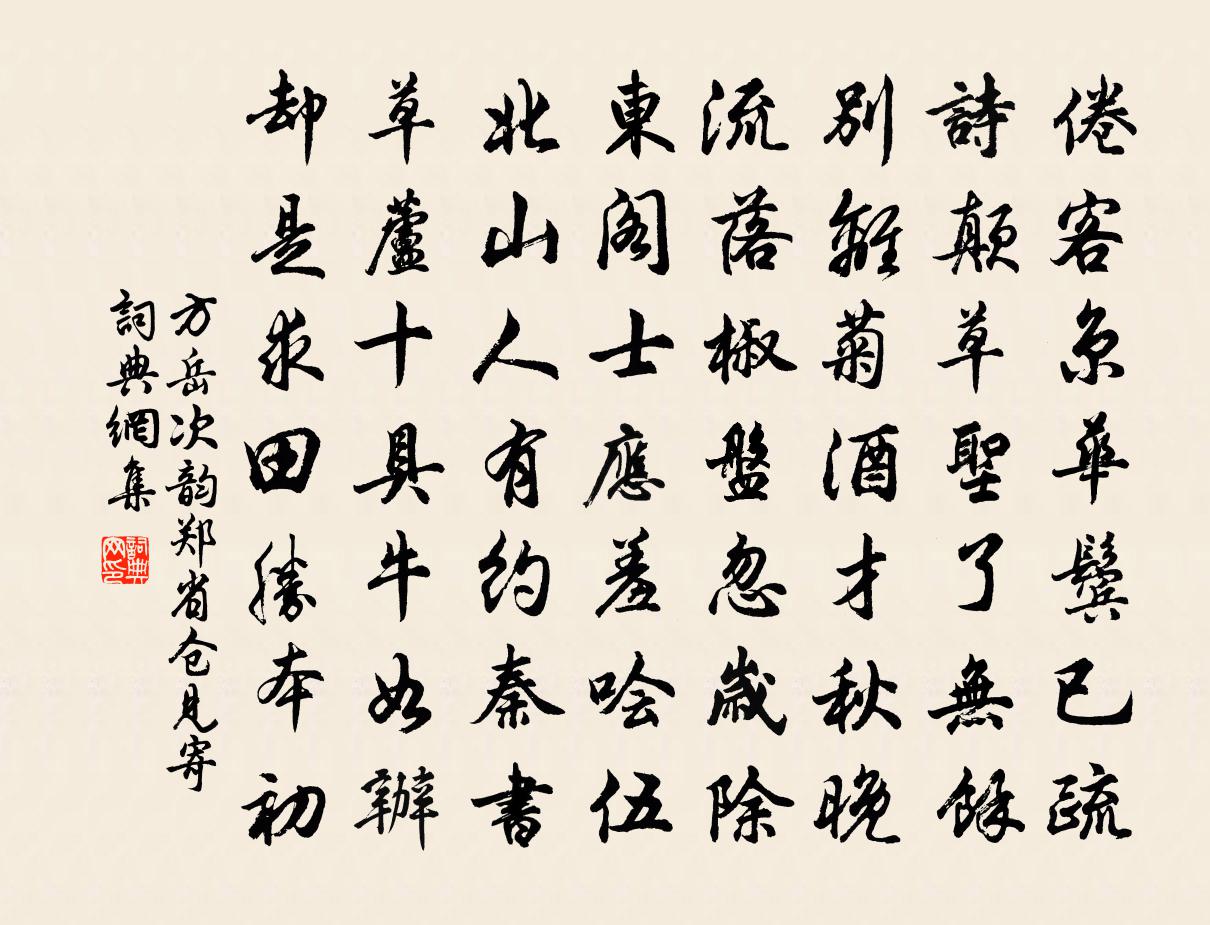 倦客京華鬢已疏
詩顛草聖了無餘
別離菊酒才秋晚
流落椒盤忽歲除
東閣士應羞噲伍
北山人有約秦書
草蘆十具牛如辦
却是求田勝本初
方岳次韵郑省仓見寄
詞典網集
詞典網印